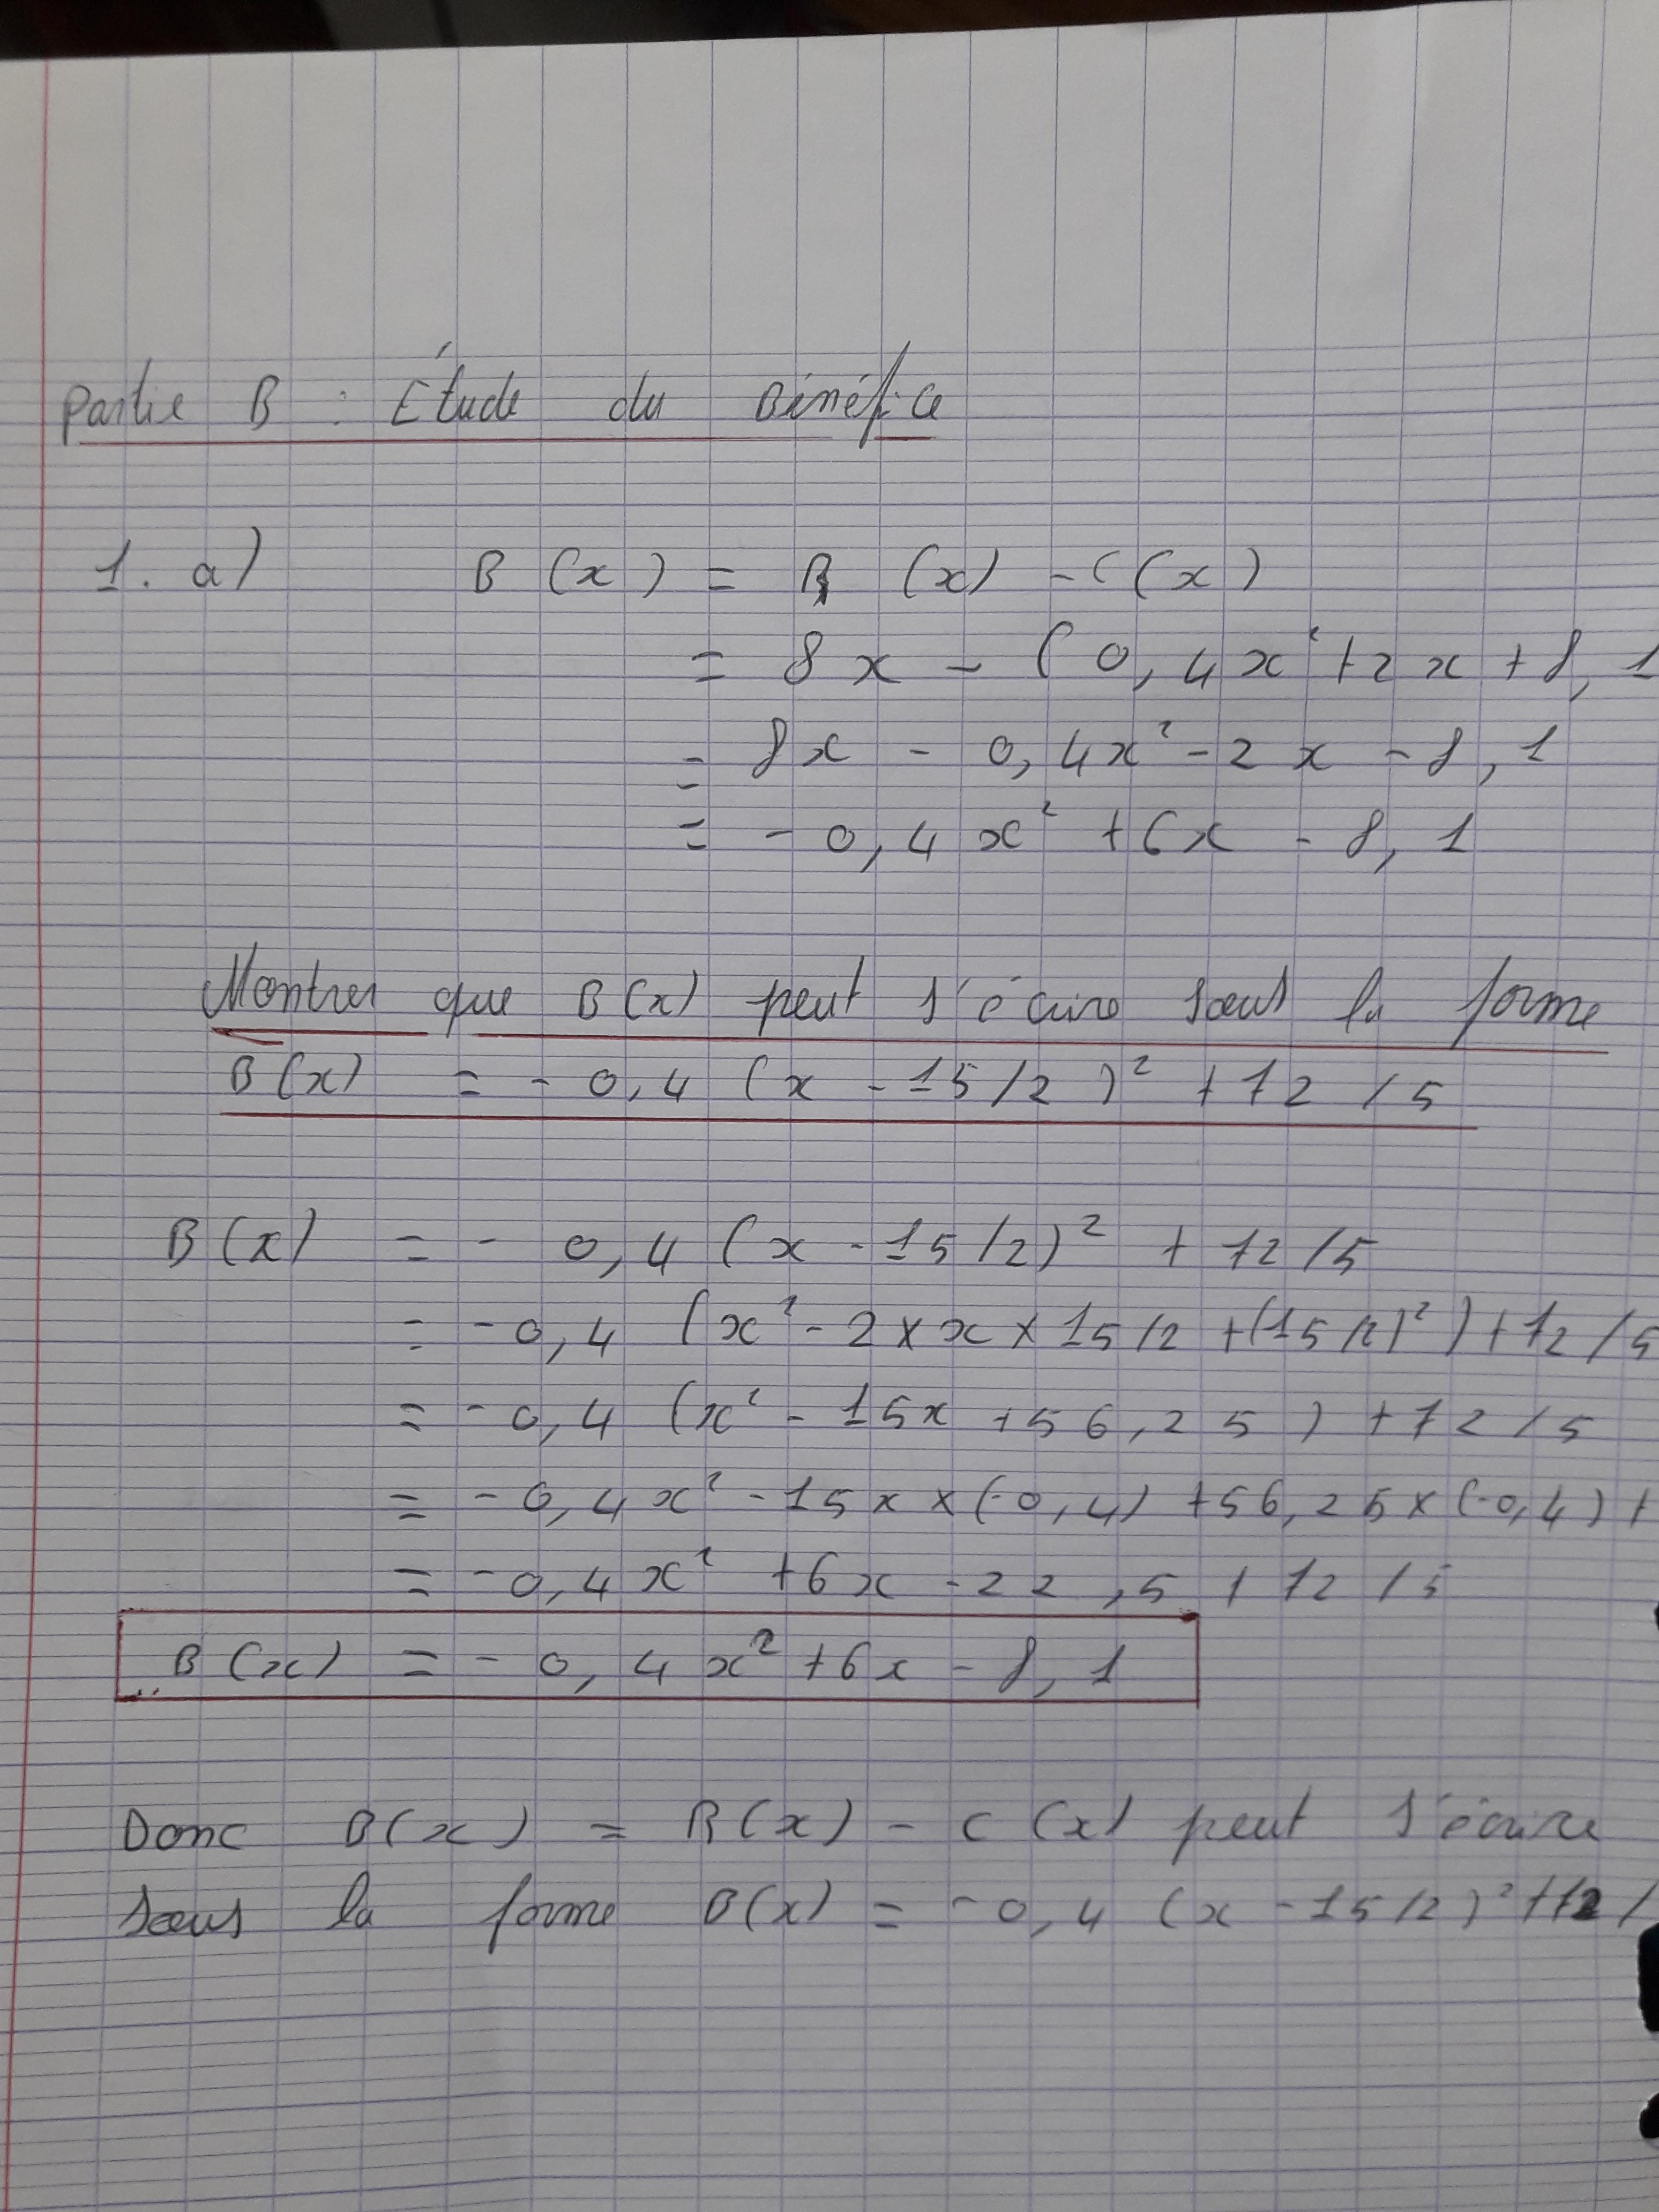 Partie B : Étude du Bénéfice
1. a) B(x) = R(x) - C(x)
= 8x - (0,4x² + 2x + 8,1
= 8x - 0,4x² - 2x - 8,1
= - 0,4x² + 6x - 8,1
Montrer que B(x) peut s'écrire sous la forme
B(x) = - 0,4 (x - 15/2)² + 72/5
B(x) = - 0,4 (x - 15/2)² + 72/5
= - 0,4 (x² - 2 × x × 15/2 + (15/2)²) + 72/5
= - 0,4 (x² - 15x + 56,25) + 72/5
= - 0,4x² - 15x × (-0,4) + 56,25 × (-0,4) +
= - 0,4x² + 6x - 22,5 + 72/5
B(x) = - 0,4x² + 6x - 8,1
Donc B(x) = R(x) - C(x) peut s'écrire
sous la forme B(x) = - 0,4 (x - 15/2)² + 72/